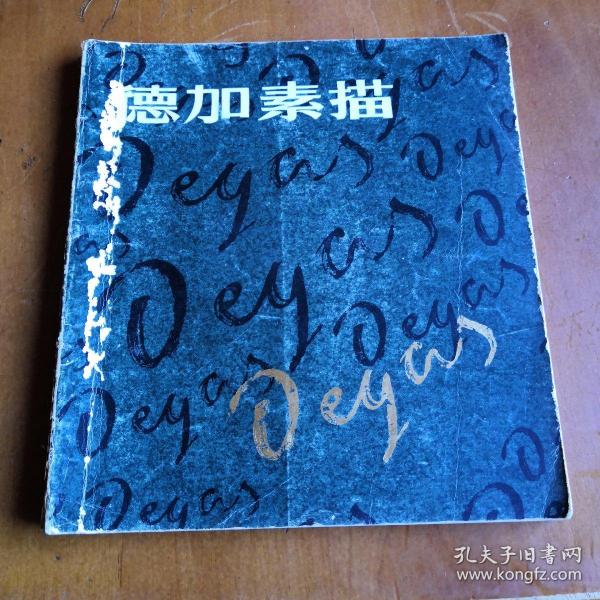 德加素描
Degas
Degas
Degas
Degas
Degas
Degas
Degas
Degas
孔夫子旧书网
www.kongfz.com